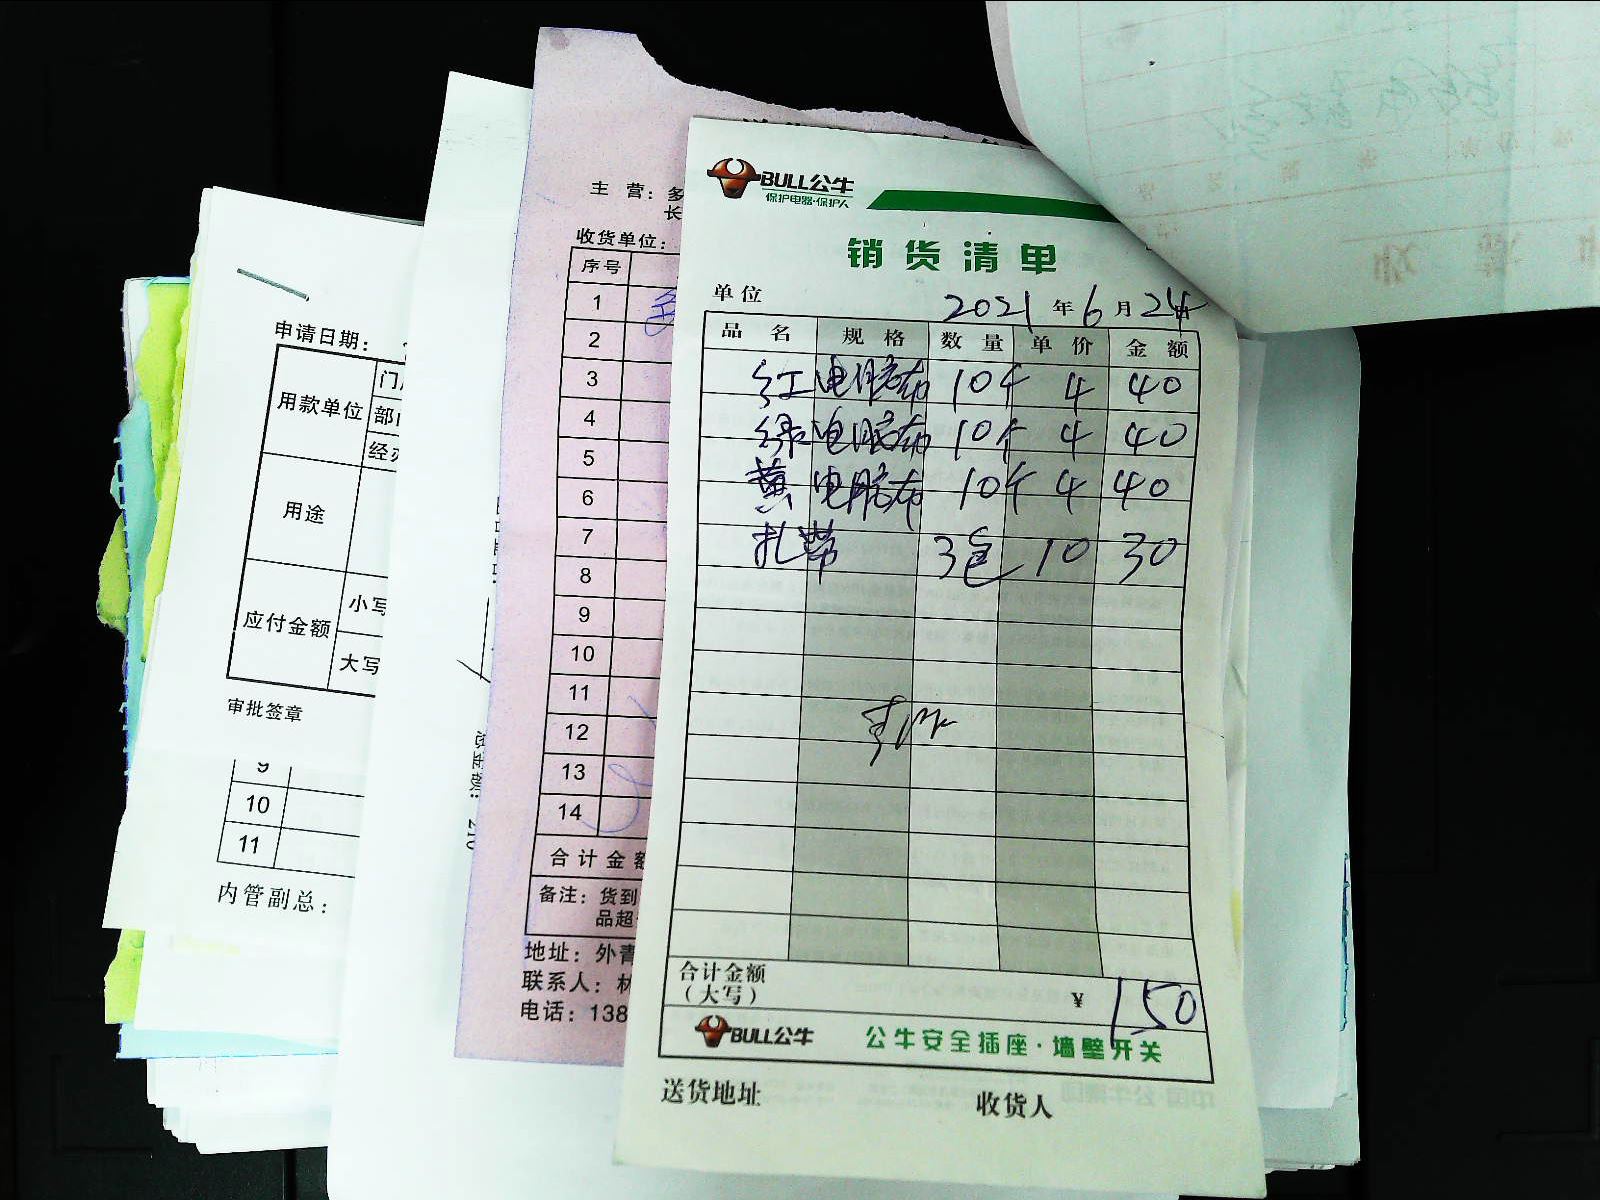 BULL公牛
保护电器·保护人
销货清单
单位 2021年6月24日
品名 规格 数量 单价 金额
红电胶布 10个 4 40
绿电胶布 10个 4 40
黄电胶布 10个 4 40
扎带 3包 10 30
合计金额
（大写） ¥ 150
BULL公牛 公牛安全插座·墙壁开关
送货地址 收货人
主 营：多
长
收货单位：
序号
1
2
3
4
5
6
7
8
9
10
11
12
13
14
合计金额
备注：货到
品超
地址：外青
联系人：林
电话：138
申请日期：
用款单位
门
部
经办
用途
应付金额
小写
大写
审批签章
9
10
11
内管副总：